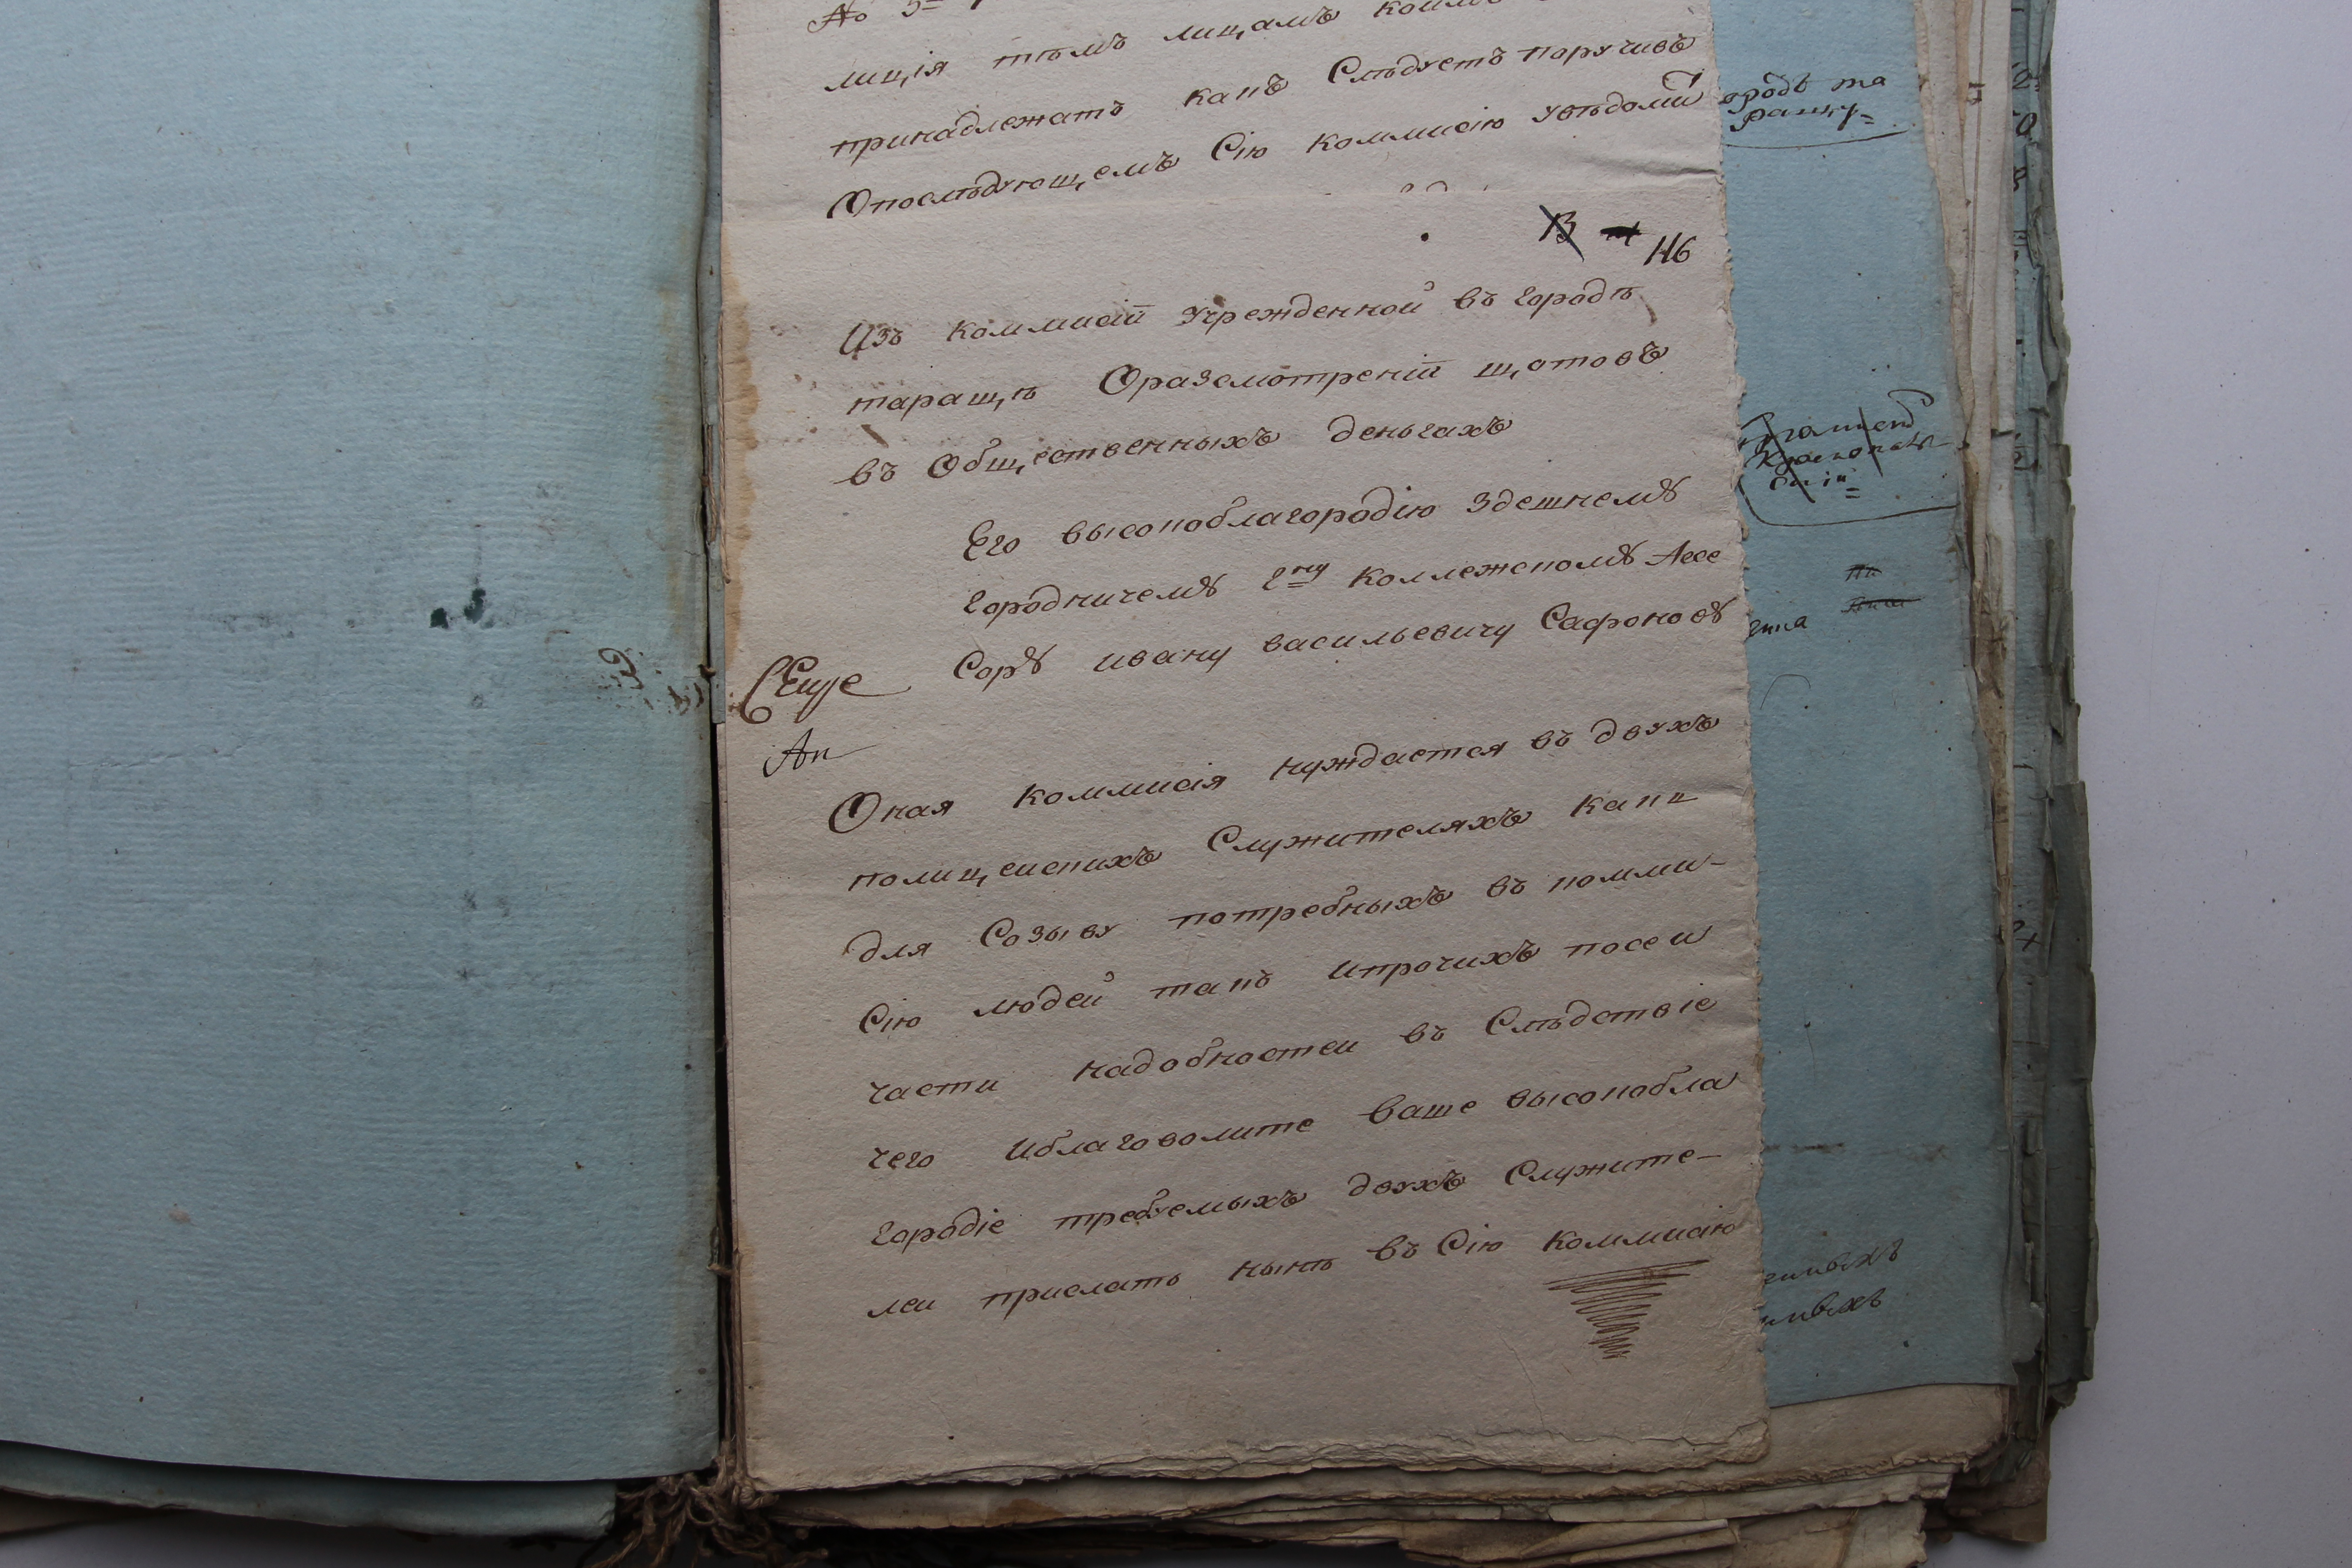 лиція тѣмъ лицамъ коимъ
принадлежатъ какъ Слѣдуетъ поручивъ
Опослѣдующемъ Сію коммисію увѣдомит
116
Изъ коммисіи Учрежденной въ городѣ
таращѣ Оразсмотреніи щотовъ
въ Общественныхъ деньгахъ
Его высокоблагородію Здешнему
городничему Гну коллежскому Ассе
Сору ивану васильевичу Сафонову
Еще
Ап
Оная коммисія нуждается въ двухъ
полицеискихъ Служителяхъ какъ
для Созыву потребныхъ въ комми-
Сію людей такъ ипрочихъ посеи
части надобностеи въ Слѣдствіе
чего иблаговолите ваше высокобла
городіе требуемыхъ двухъ Служите-
леи прислать нынѣ въ Сію коммисію
ородѣ та
ращу=